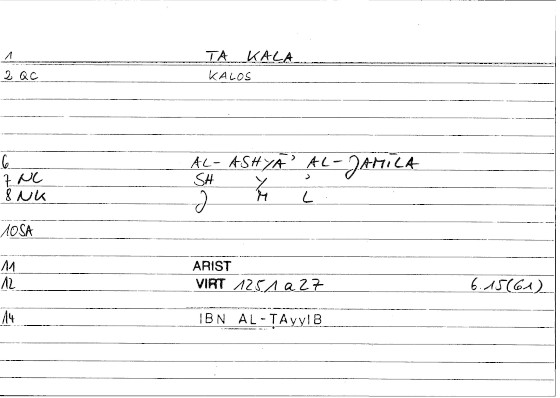 1 TA KALA
2 QC KALOS
6 AL- ASHYĀʾ AL-JAMĪLA
7 NC SH Y ʾ
8 NK J M L
10SA
11 ARIST
12 VIRT 1251a27 6.15(61)
14 IBN AL-ṬAyyIB